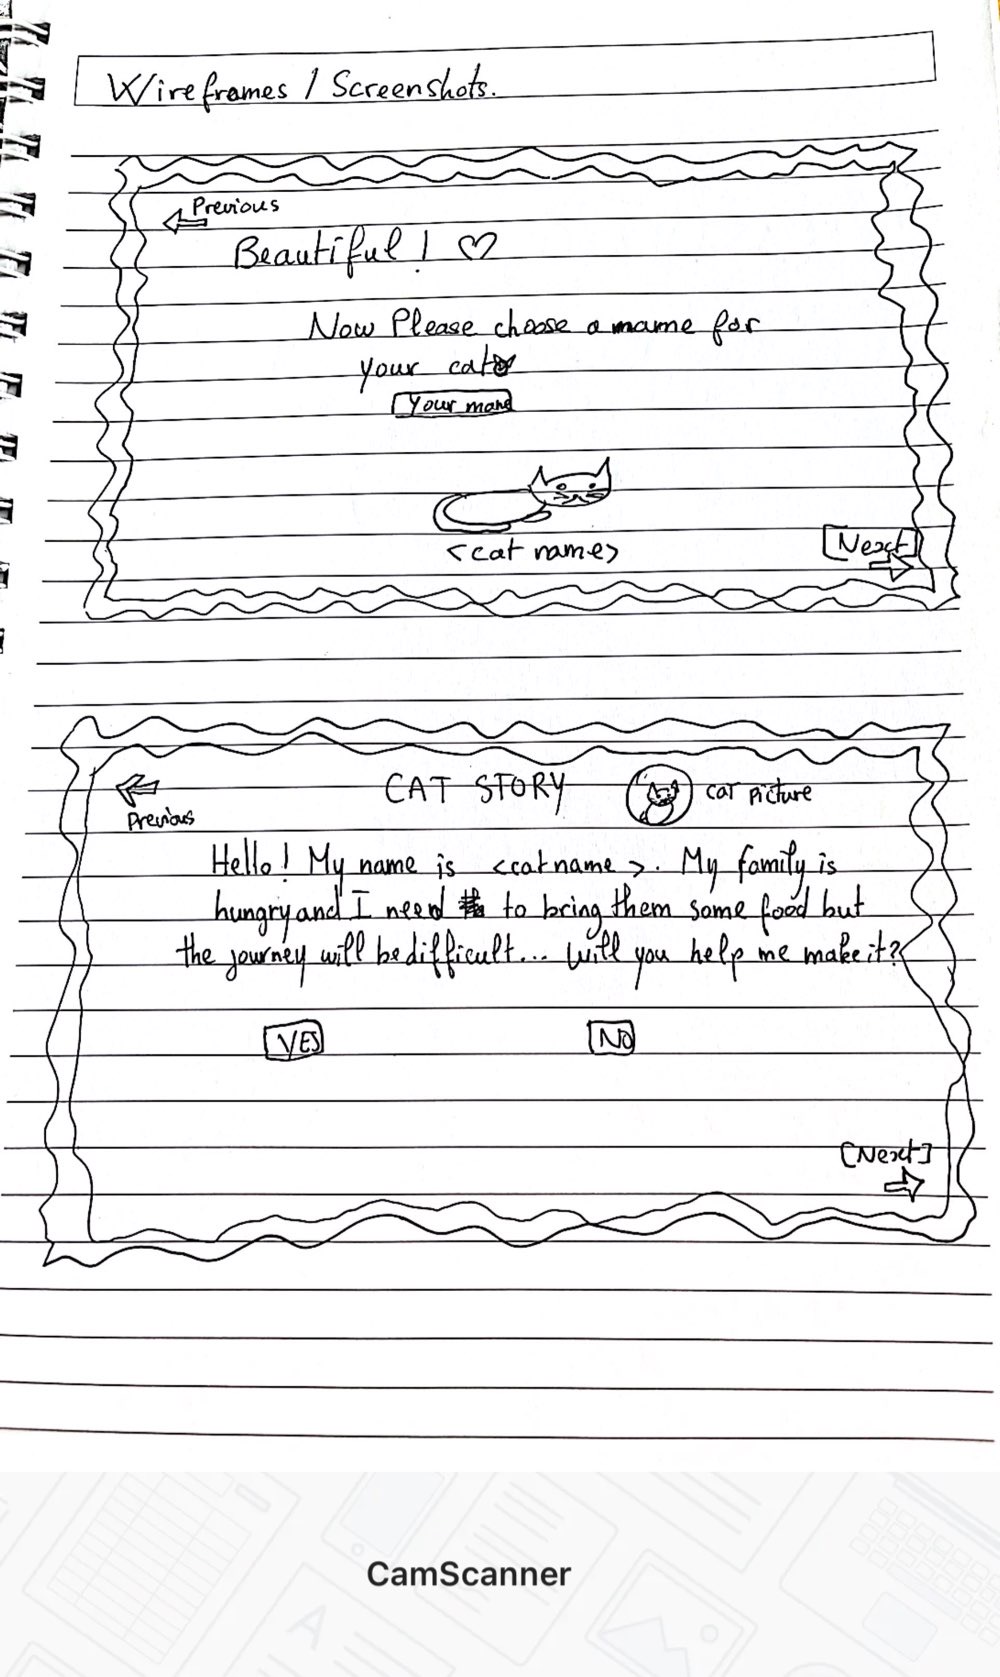 Wireframes / Screenshots.
Previous
Beautiful! ♡
Now Please choose a mame for
your cat
Your mame
<cat name>
[Next]
CAT STORY
cat picture
Previous
Hello! My name is <catname>. My family is
hungry and I need to bring them some food but
the journey will be difficult... Will you help me make it?
YES
NO
[Next]
CamScanner